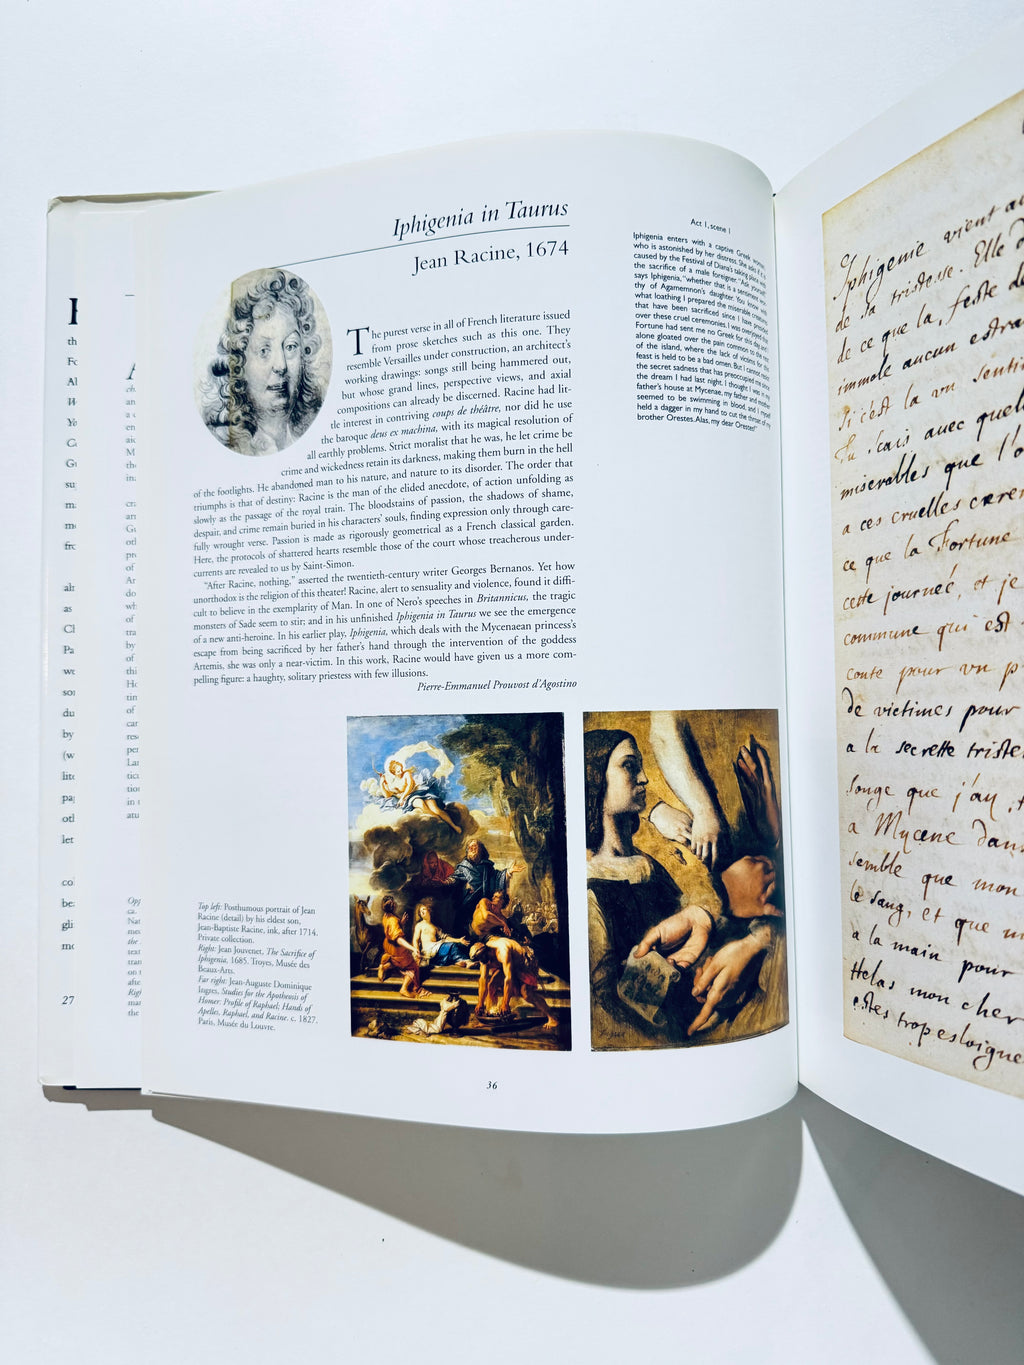 Iphigenia in Taurus
Jean Racine, 1674
The purest verse in all of French literature issued
from prose sketches such as this one. They
resemble Versailles under construction, an architect's
working drawings: songs still being hammered out,
but whose grand lines, perspective views, and axial
compositions can already be discerned. Racine had lit-
tle interest in contriving coups de théâtre, nor did he use
the baroque deus ex machina, with its magical resolution of
all earthly problems. Strict moralist that he was, he let crime be
crime and wickedness retain its darkness, making them burn in the hell
of the footlights. He abandoned man to his nature, and nature to its disorder. The order that
triumphs is that of destiny: Racine is the man of the elided anecdote, of action unfolding as
slowly as the passage of the royal train. The bloodstains of passion, the shadows of shame,
despair, and crime remain buried in his characters' souls, finding expression only through care-
fully wrought verse. Passion is made as rigorously geometrical as a French classical garden.
Here, the protocols of shattered hearts resemble those of the court whose treacherous under-
currents are revealed to us by Saint-Simon.
"After Racine, nothing," asserted the twentieth-century writer Georges Bernanos. Yet how
unorthodox is the religion of this theater! Racine, alert to sensuality and violence, found it diffi-
cult to believe in the exemplarity of Man. In one of Nero's speeches in Britannicus, the tragic
monsters of Sade seem to stir; and in his unfinished Iphigenia in Taurus we see the emergence
of a new anti-heroine. In his earlier play, Iphigenia, which deals with the Mycenaean princess's
escape from being sacrificed by her father's hand through the intervention of the goddess
Artemis, she was only a near-victim. In this work, Racine would have given us a more com-
pelling figure: a haughty, solitary priestess with few illusions.
Pierre-Emmanuel Prouvost d'Agostino
Act 1, scene 1
Iphigenia enters with a captive Greek
who is astonished by her distress. She asks if it is
caused by the Festival of Diana's taking place with
the sacrifice of a male foreigner. "Ask yourself,"
says Iphigenia, "whether that is a sentiment wor-
thy of Agamemnon's daughter. You know with
what loathing I prepared the miserable creatures
that have been sacrificed since I have presided
over these cruel ceremonies. I was overjoyed that
Fortune had sent me no Greek for this day, and
alone gloated over the pain common to the rest
of the island, where the lack of victims for this
feast is held to be a bad omen. But I cannot
the secret sadness that has preoccupied me since
the dream I had last night. I thought I was in my
father's house at Mycenae, my father and mother
seemed to be swimming in blood, and I myself
held a dagger in my hand to cut the throat of my
brother Orestes. Alas, my dear Orestes!"
Top left: Posthumous portrait of Jean
Racine (detail) by his eldest son,
Jean-Baptiste Racine, ink, after 1714.
Private collection.
Right: Jean Jouvenet, The Sacrifice of
Iphigenia, 1685. Troyes, Musée des
Beaux-Arts.
Far right: Jean-Auguste Dominique
Ingres, Studies for the Apotheosis of
Homer: Profile of Raphael; Hands of
Apelles, Raphael, and Racine. c. 1827.
Paris, Musée du Louvre.
36
27
Iphigenie vient
de sa tristesse. Elle
de ce que la, feste de
immole aucun
si c'est la un
Tu sçais avec
miserables que
a ces cruelles
ce que la Fortune
cette journeé, et je
commune qui est
conte pour un
de victimes pour
a la secrette
songe que j'ay
a Mycene dans
semble que mon
le sang, et que
a la main pour
Helas mon cher
estes trop esloigne